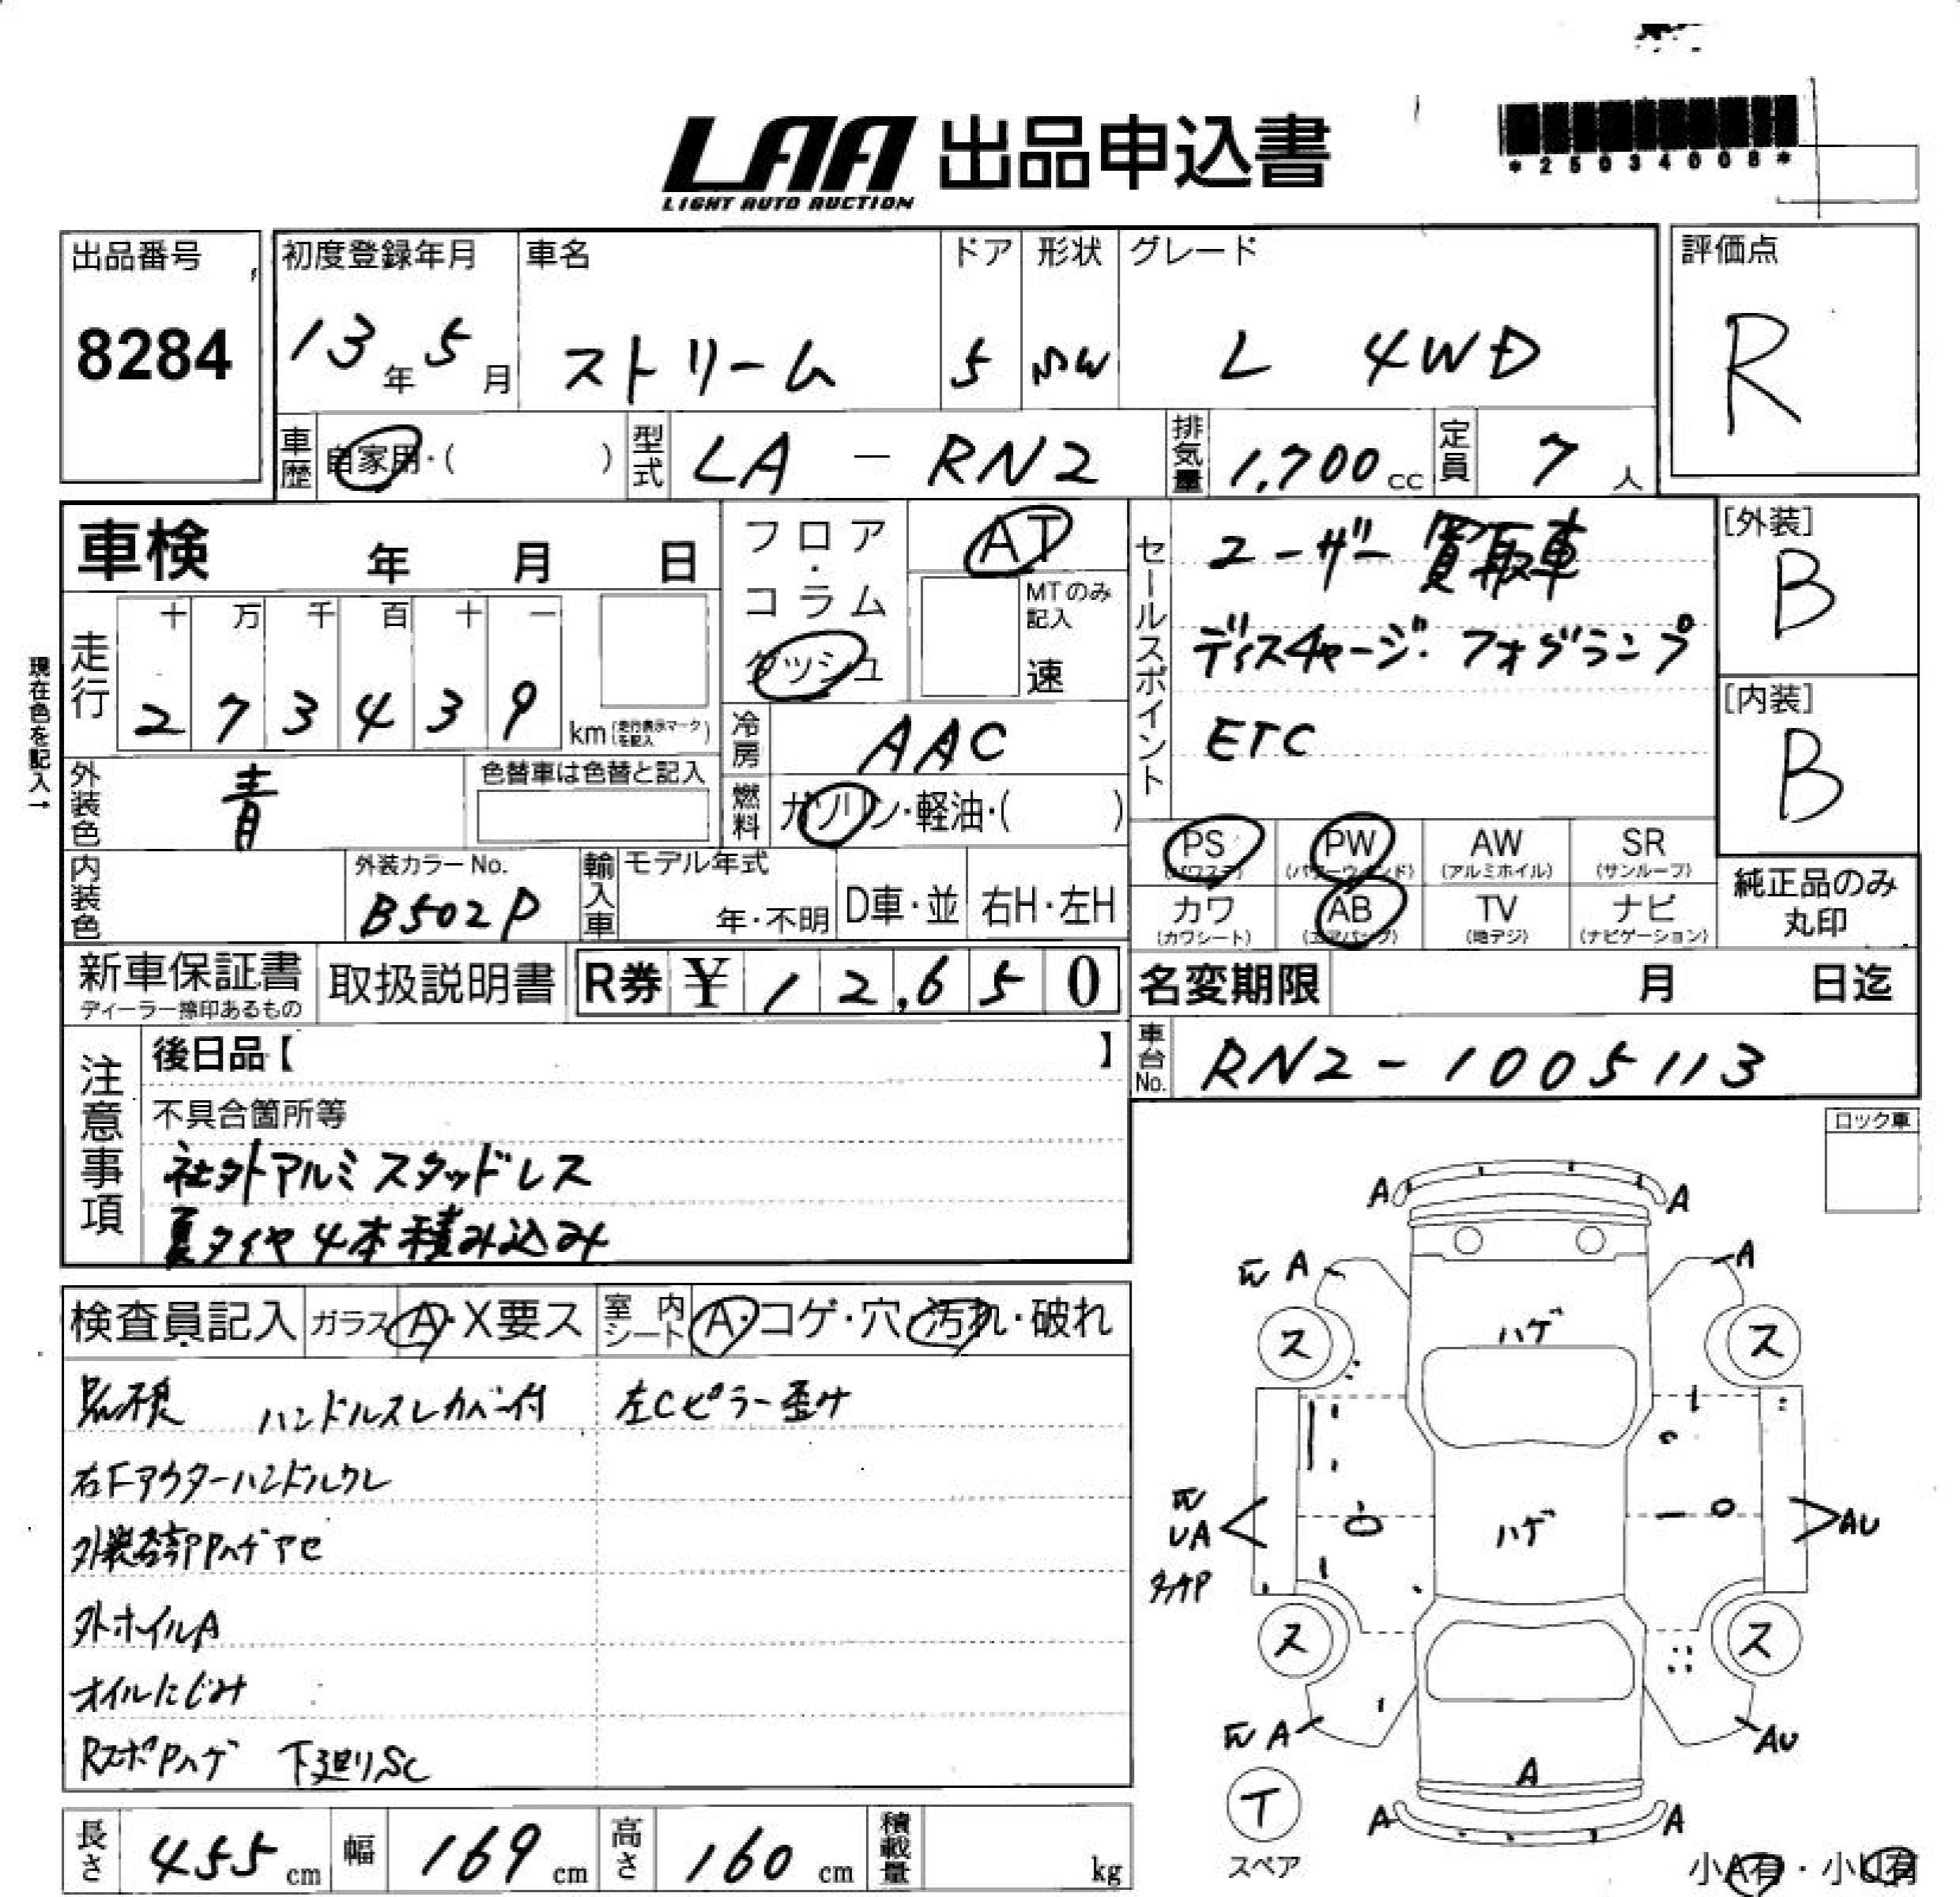 LAA 出品申込書
LIGHT AUTO AUCTION
*25034008*
出品番号
8284
初度登録年月
13年 5月
車名
ストリーム
ドア
5
形状
グレード
L 4WD
評価点
R
車歴
自家用・( )
型式
LA - RN2
排気量
1,700 cc
定員
7 人
車検 年 月 日
フロア・コラム
ダッシュ
AT
MTのみ記入
速
セールスポイント
ユーザー買取車
ディスチャージ・フォグランプ
ETC
[外装]
B
[内装]
B
現在色を記入→
走行
十 万 千 百 十 一
2 7 3 4 3 9
km (走行表示マークを記入)
冷房
AAC
外装色
青
色替車は色替と記入
燃料
ガソリン・軽油・( )
PS
(パワステ)
PW
(パワーウインド)
AW
(アルミホイル)
SR
(サンルーフ)
カワ
(カワシート)
AB
(エアバッグ)
TV
(地デジ)
ナビ
(ナビゲーション)
純正品のみ
丸印
内装色
外装カラーNo.
B502P
輸入車
モデル年式
年・不明
D車・並
右H・左H
新車保証書
ディーラー捺印あるもの
取扱説明書
R券 ¥12,650
名変期限 月 日迄
車台No.
RN2-1005113
注意事項
後日品【 】
不具合箇所等
社外アルミスタッドレス
夏タイヤ4本積み込み
ロック車
検査員記入
ガラス A・X要ス
室内シート A・コゲ・穴・汚れ・破れ
ハンドルスレカバー付
左Cピラー歪み
右Fアウターハンドルワレ
外ホイルA
オイルにじみ
下廻りSC
A
A
A
A
ハゲ
ス
ス
ハゲ
UA
AU
ス
ス
A
AU
A
A
A
T
スペア
小A有・小U有
長さ
455 cm
幅
169 cm
高さ
160 cm
積載量
kg